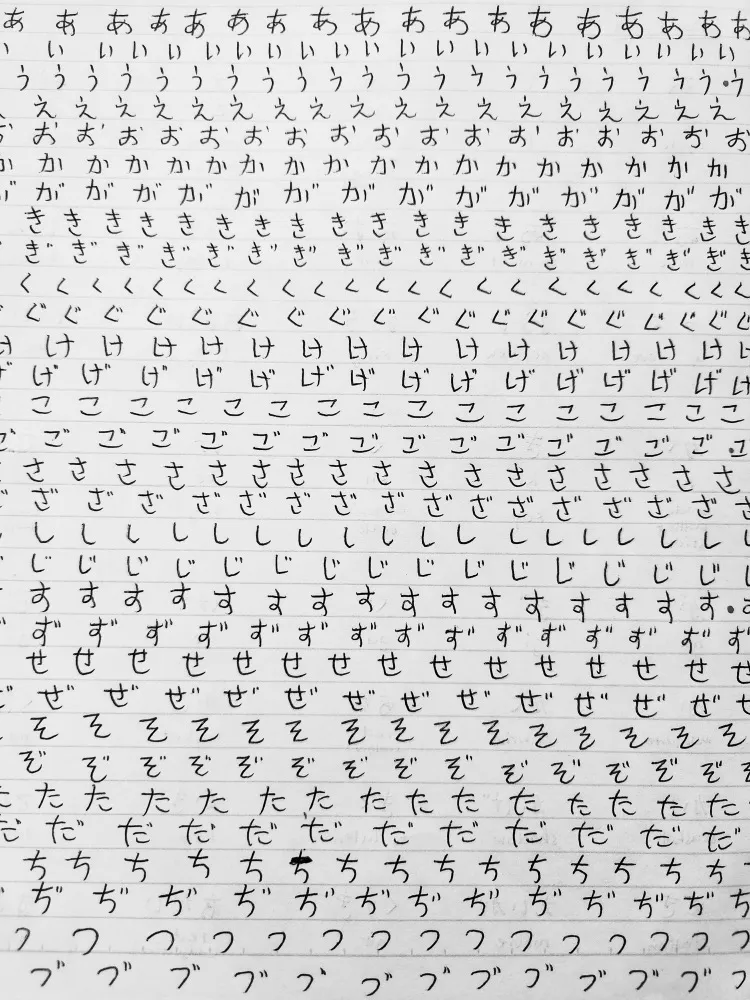 あああああああああああああああああああ
いいいいいいいいいいいいいいいいいいい
うううううううううううううううううううううう
ええええええええええええええええええ
おおおおおおおおおおおおおおおおお
かかかかかかかかかかかかかかかかか
がががががががががががががが
きききききききききききききききききき
ぎぎぎぎぎぎぎぎぎぎぎぎぎぎぎぎぎぎ
くくくくくくくくくくくくくくくくくくくくくく
ぐぐぐぐぐぐぐぐぐぐぐぐぐぐぐぐぐぐぐ
けけけけけけけけけけけけけけけ
げげげげげげげげげげげげげげげ
ここここここここここここここここ
ごごごごごごごごごごごごごごご
さささささささささささささささささ
ざざざざざざざざざざざざざざざざ
しししししししししししししししししし
じじじじじじじじじじじじじじじじ
すすすすすすすすすすすすすすすす
ずずずずずずずずずずずずずずず
せせせせせせせせせせせせせせせ
ぜぜぜぜぜぜぜぜぜぜぜぜぜ
そそそそそそそそそそそそそそそ
ぞぞぞぞぞぞぞぞぞぞぞぞぞぞぞ
たたたたたたたたたたたたたた
だだだだだだだだだだだだ
ちちちちちちちちちちちちちちち
ぢぢぢぢぢぢぢぢぢぢぢぢぢ
つつつつつつつつつつつつつつつ
づづづづづづづづづづづづづ